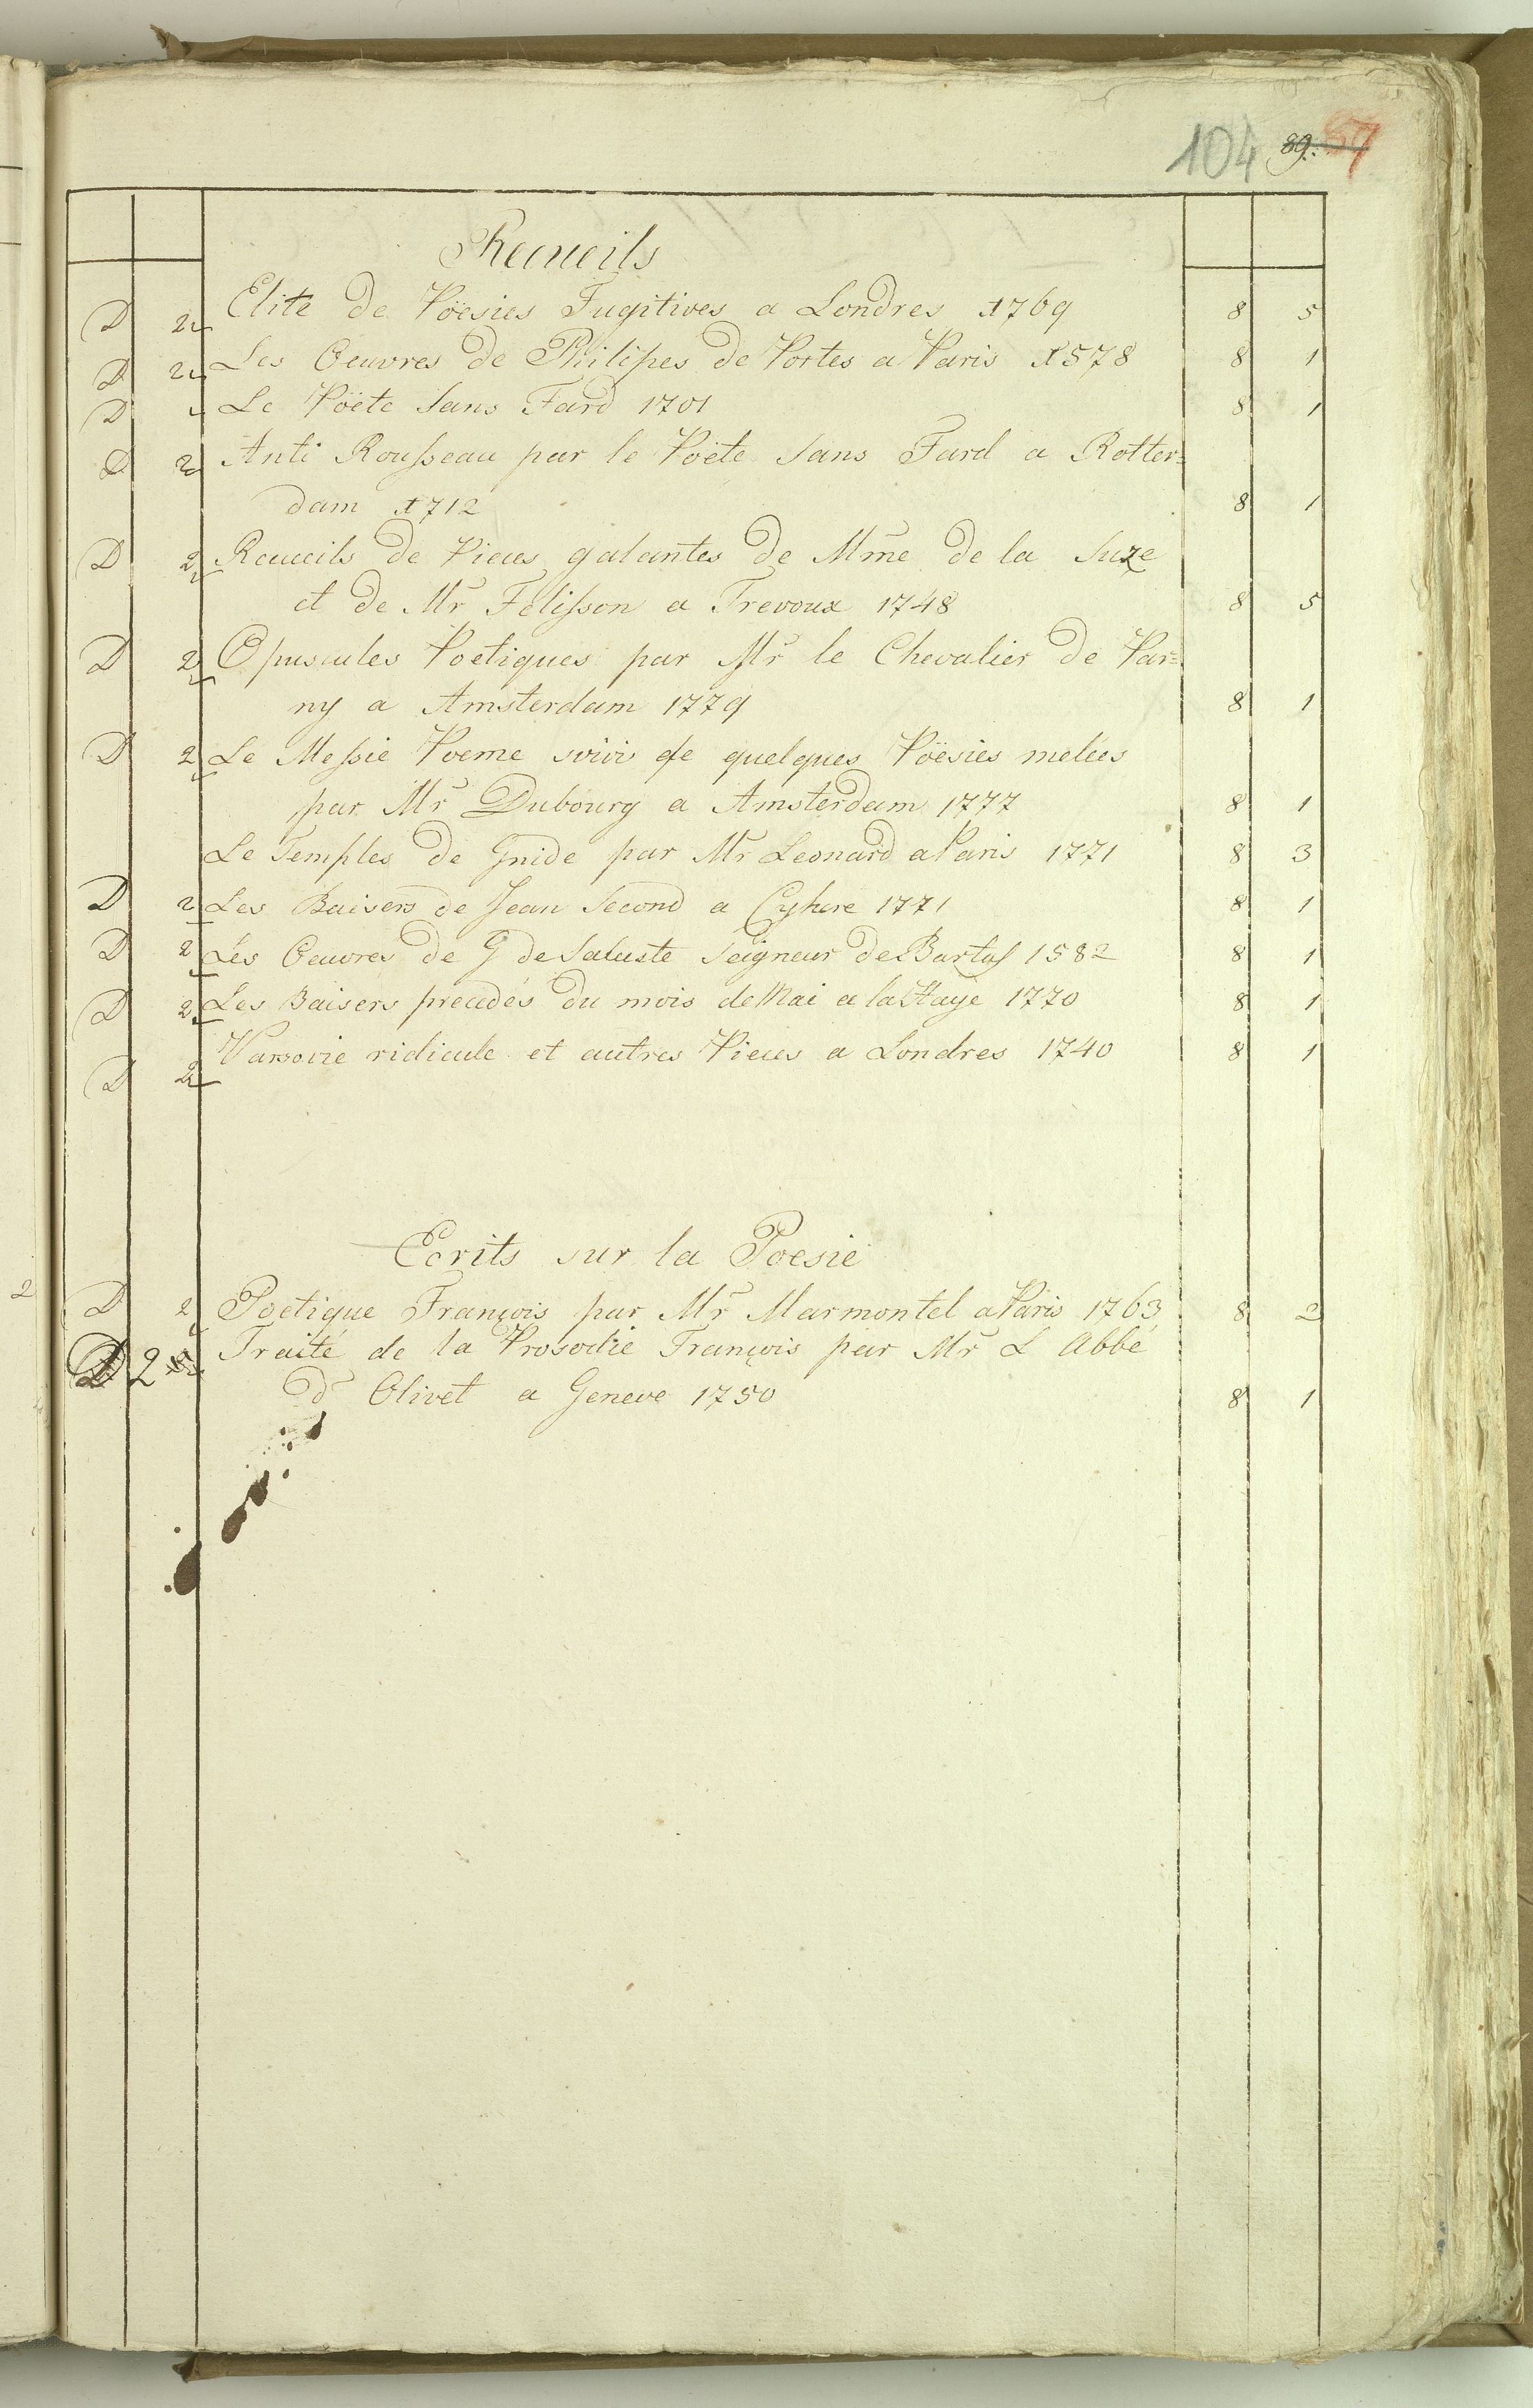 104 89. 57
Recueils
D 2 Elite de Pöesies Fugitives a Londres 1769 8 5
D 2 Les Oeuvres de Philipes de Portes a Paris 1578 8 1
D Le Pöete sans Fard 1701 8 1
D 2 Anti Rousseau par le Poëte sans Fard a Rotter=
dam 1712 8 1
D 2 Recueils de Pieces galantes de Mme de la Suze
et de Mr Felisson a Trevoux 1748 8 5
D 2 Opuscules Poetiques par Mr le Chevalier de Par=
ny a Amsterdam 1779 8 1
D 2 Le Messie Poeme suivi de quelques Pöesies melées
par Mr Dubourg a Amsterdam 1777 8 1
Le Temples de Gnide par Mr Leonard a Paris 1771 8 3
D 2 Les Baisers de Jean Second a Cythere 1771 8 1
D 2 Les Oeuvres de G de Saluste Seigneur de Bartas 1582 8 1
D 2 Les Baisers precedés du mois de Mai a la Haye 1770 8 1
D 2 Varsovie ridicule et autres Pieces a Londres 1740 8 1
Ecrits sur la Poesie
D 2 Poetique François par Mr Marmontel a Paris 1763 8 2
D 2 Traité de la Prosodie François par Mr L Abbé
d' Olivet a Geneve 1750 8 1
2